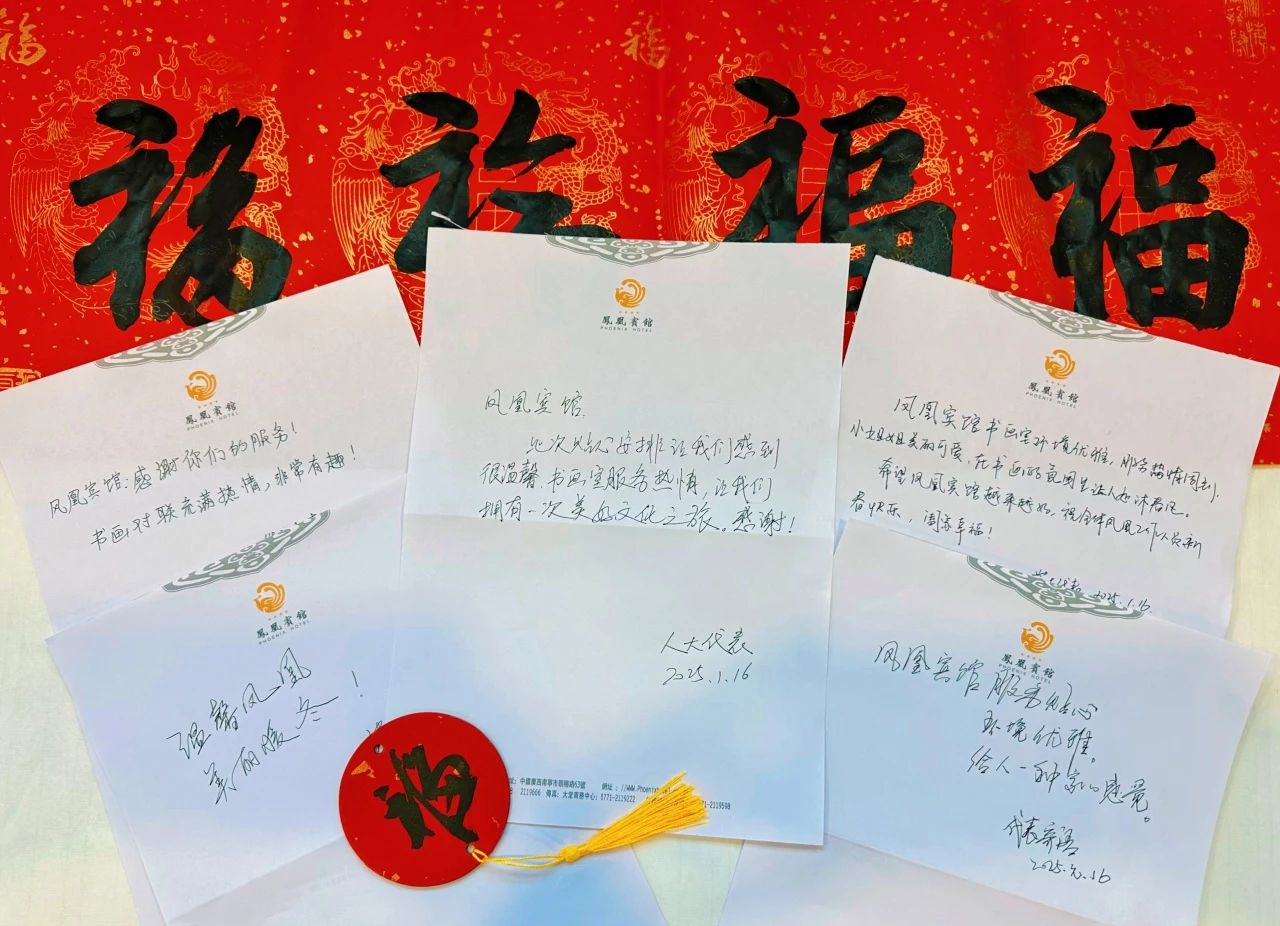 福 福 福
鳳凰賓館
PHOENIX HOTEL
凤凰宾馆：感谢你们的服务！
书画、对联充满热情，非常有趣！
鳳凰賓館
PHOENIX HOTEL
凤凰宾馆.
此次贴心安排让我们感到
很温馨.书画室服务热情，让我们
拥有一次美好文化之旅。感谢！
人大代表
2025.1.16
中國廣西南寧市朝陽路63號 網址：
2119666 傳真：大堂商務中心：0771-2119222
71-2119598
鳳凰賓館
PHOENIX HOTEL
凤凰宾馆书画室环境优雅，服务热情周到，
小姐姐美丽可爱，在书画的氛围里让人如沐春风。
希望凤凰宾馆越来越好，祝全体凤凰工作人员新
春快乐，阖家幸福！
2025.1.16
鳳凰賓館
PHOENIX HOTEL
温馨凤凰
美丽暖冬！
鳳凰賓館
PHOENIX HOTEL
凤凰宾馆服务贴心
环境优雅。
给人一种家的感觉。
代表寄语
2025.元.16
福